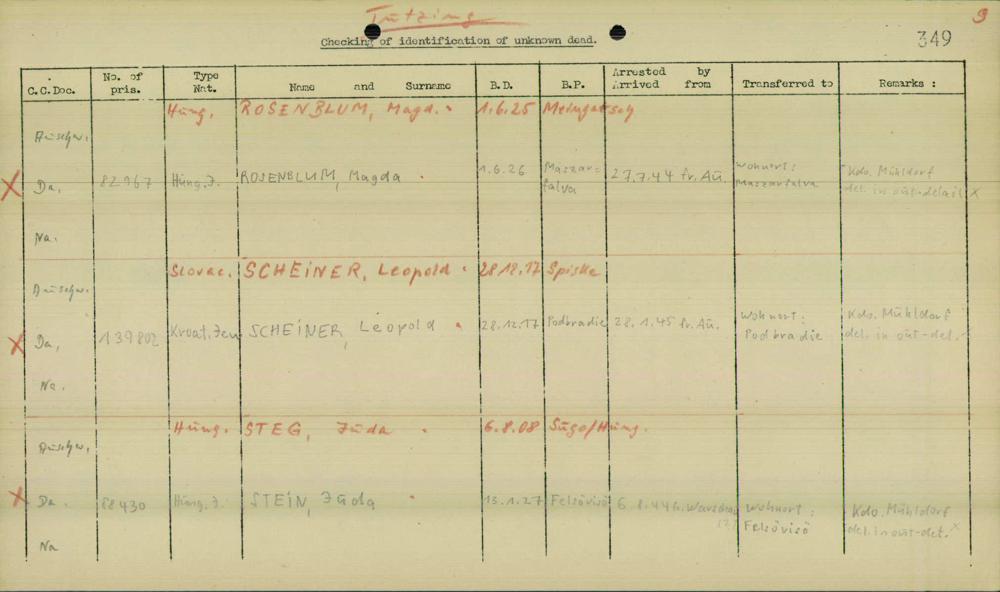 Tutzing
9
Checking of identification of unknown dead.
349
C.C.Doc. No. of pris. Type Nat. Name and Surname B.D. B.P. Arrested by Arrived from Transferred to Remarks :
Hung. ROSENBLUM, Magd. 1.6.25
Auschw.
X Da, 82967 Hung.J. ROSENBLUM, Magda 1.6.26 Maszar= falva 27.7.44 fr. Au. Wohnort: Maszarfalva Kdo. Mühldorf del. in out-detail X
Na.
Slovac. SCHEINER, Leopold 28.12.17 Spiske
Auschw.
X Da, 139802 Kroat.Jew SCHEINER, Leopold 28.12.17 Podbradie 28.1.45 fr. Au. Wohnort: Podbradie Kdo. Mühldorf del. in out-det.
Na.
Hung. STEG, Juda 6.8.08 Sugo/Hung.
Auschw.
X Da. 88430 Hung.J. STEIN, Juda 13.1.27 Felsövisö 6.8.44 fr. Warschau (?) Wohnort: Felsövisö Kdo. Mühldorf del. in out-det. X
Na